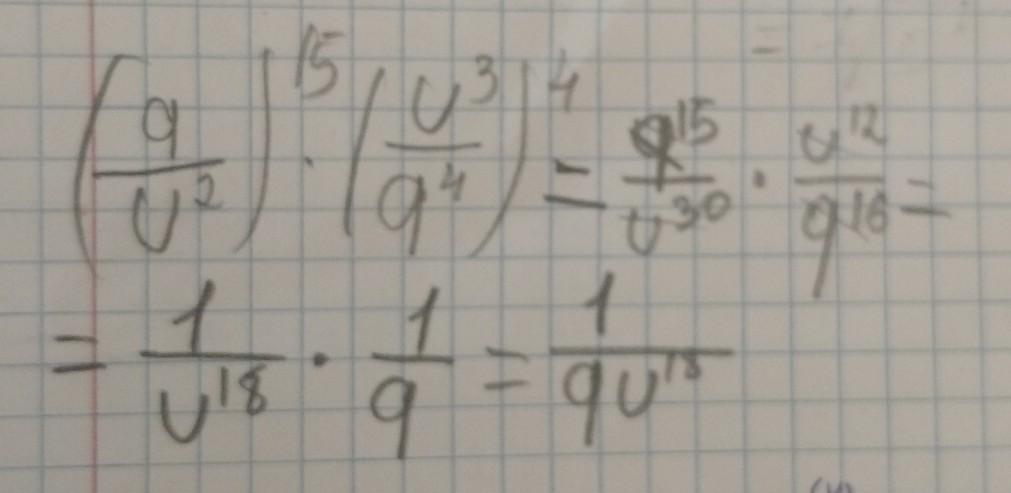 (q/v²)¹⁵ · (v³/q⁴)⁴ = q¹⁵/v³⁰ · v¹²/q¹⁶ =
= 1/v¹⁸ · 1/q = 1/qv¹⁸